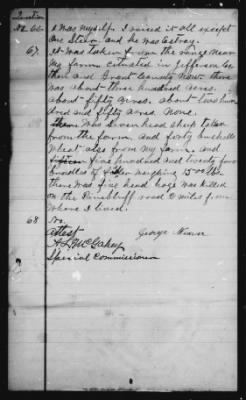 Question
32 66
I was myself. I raised it all except
one Steer and he was Estray.
67.
It was taken from the range near
my farm situated in Jefferson Co
then and Grant County now. there
was about three hundred acres.
about fifty acres. about two hun
dred and fifty acres. None.
There was seven head sheep taken
from the farm, and forty bushels
wheat also from my farm, and
five hundred and twenty four
bundles of fodder weighing 1500 lbs
there was five head hogs was killed
on the Pine Bluff road 2 miles from
where I lived.
68
No.
Attest
George
A L McCaskey
Special Commissioner